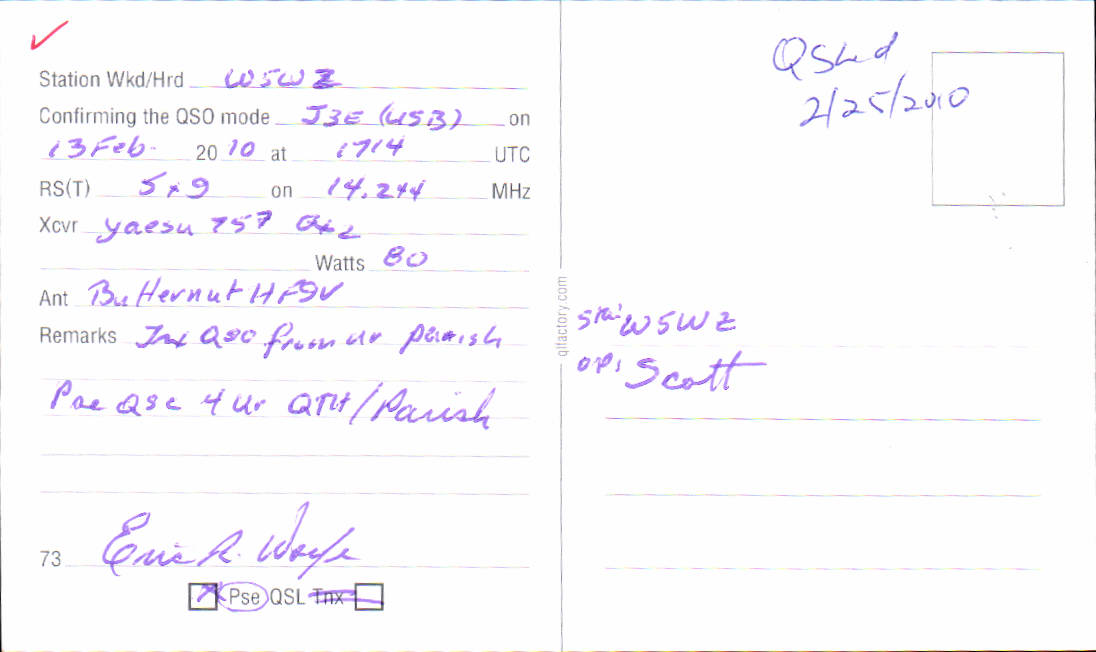 Station Wkd/Hrd W5WZ
Confirming the QSO mode J3E (USB) on
13 Feb. 20 10 at 1714 UTC
RS(T) 5x9 on 14.244 MHz
Xcvr yaesu 757 Gx2
Watts 80
Ant Butternut HF9V
Remarks Tnx QSO from ur parish
Pse QSL 4 Ur QTH/Parish
73 Eric R. Wolfe
Pse QSL Tnx
qlfactory.com
QSLed
2/25/2010
Sta: W5WZ
OP: Scott